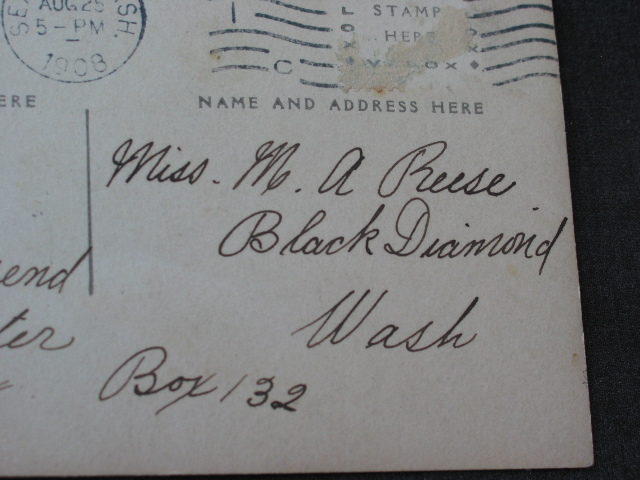 AUG 25
5-PM
1908
C
STAMP
HERE
VELOX
ERE
NAME AND ADDRESS HERE
Miss. M. A Reese
Black Diamond
Wash
Box 132
end
ter